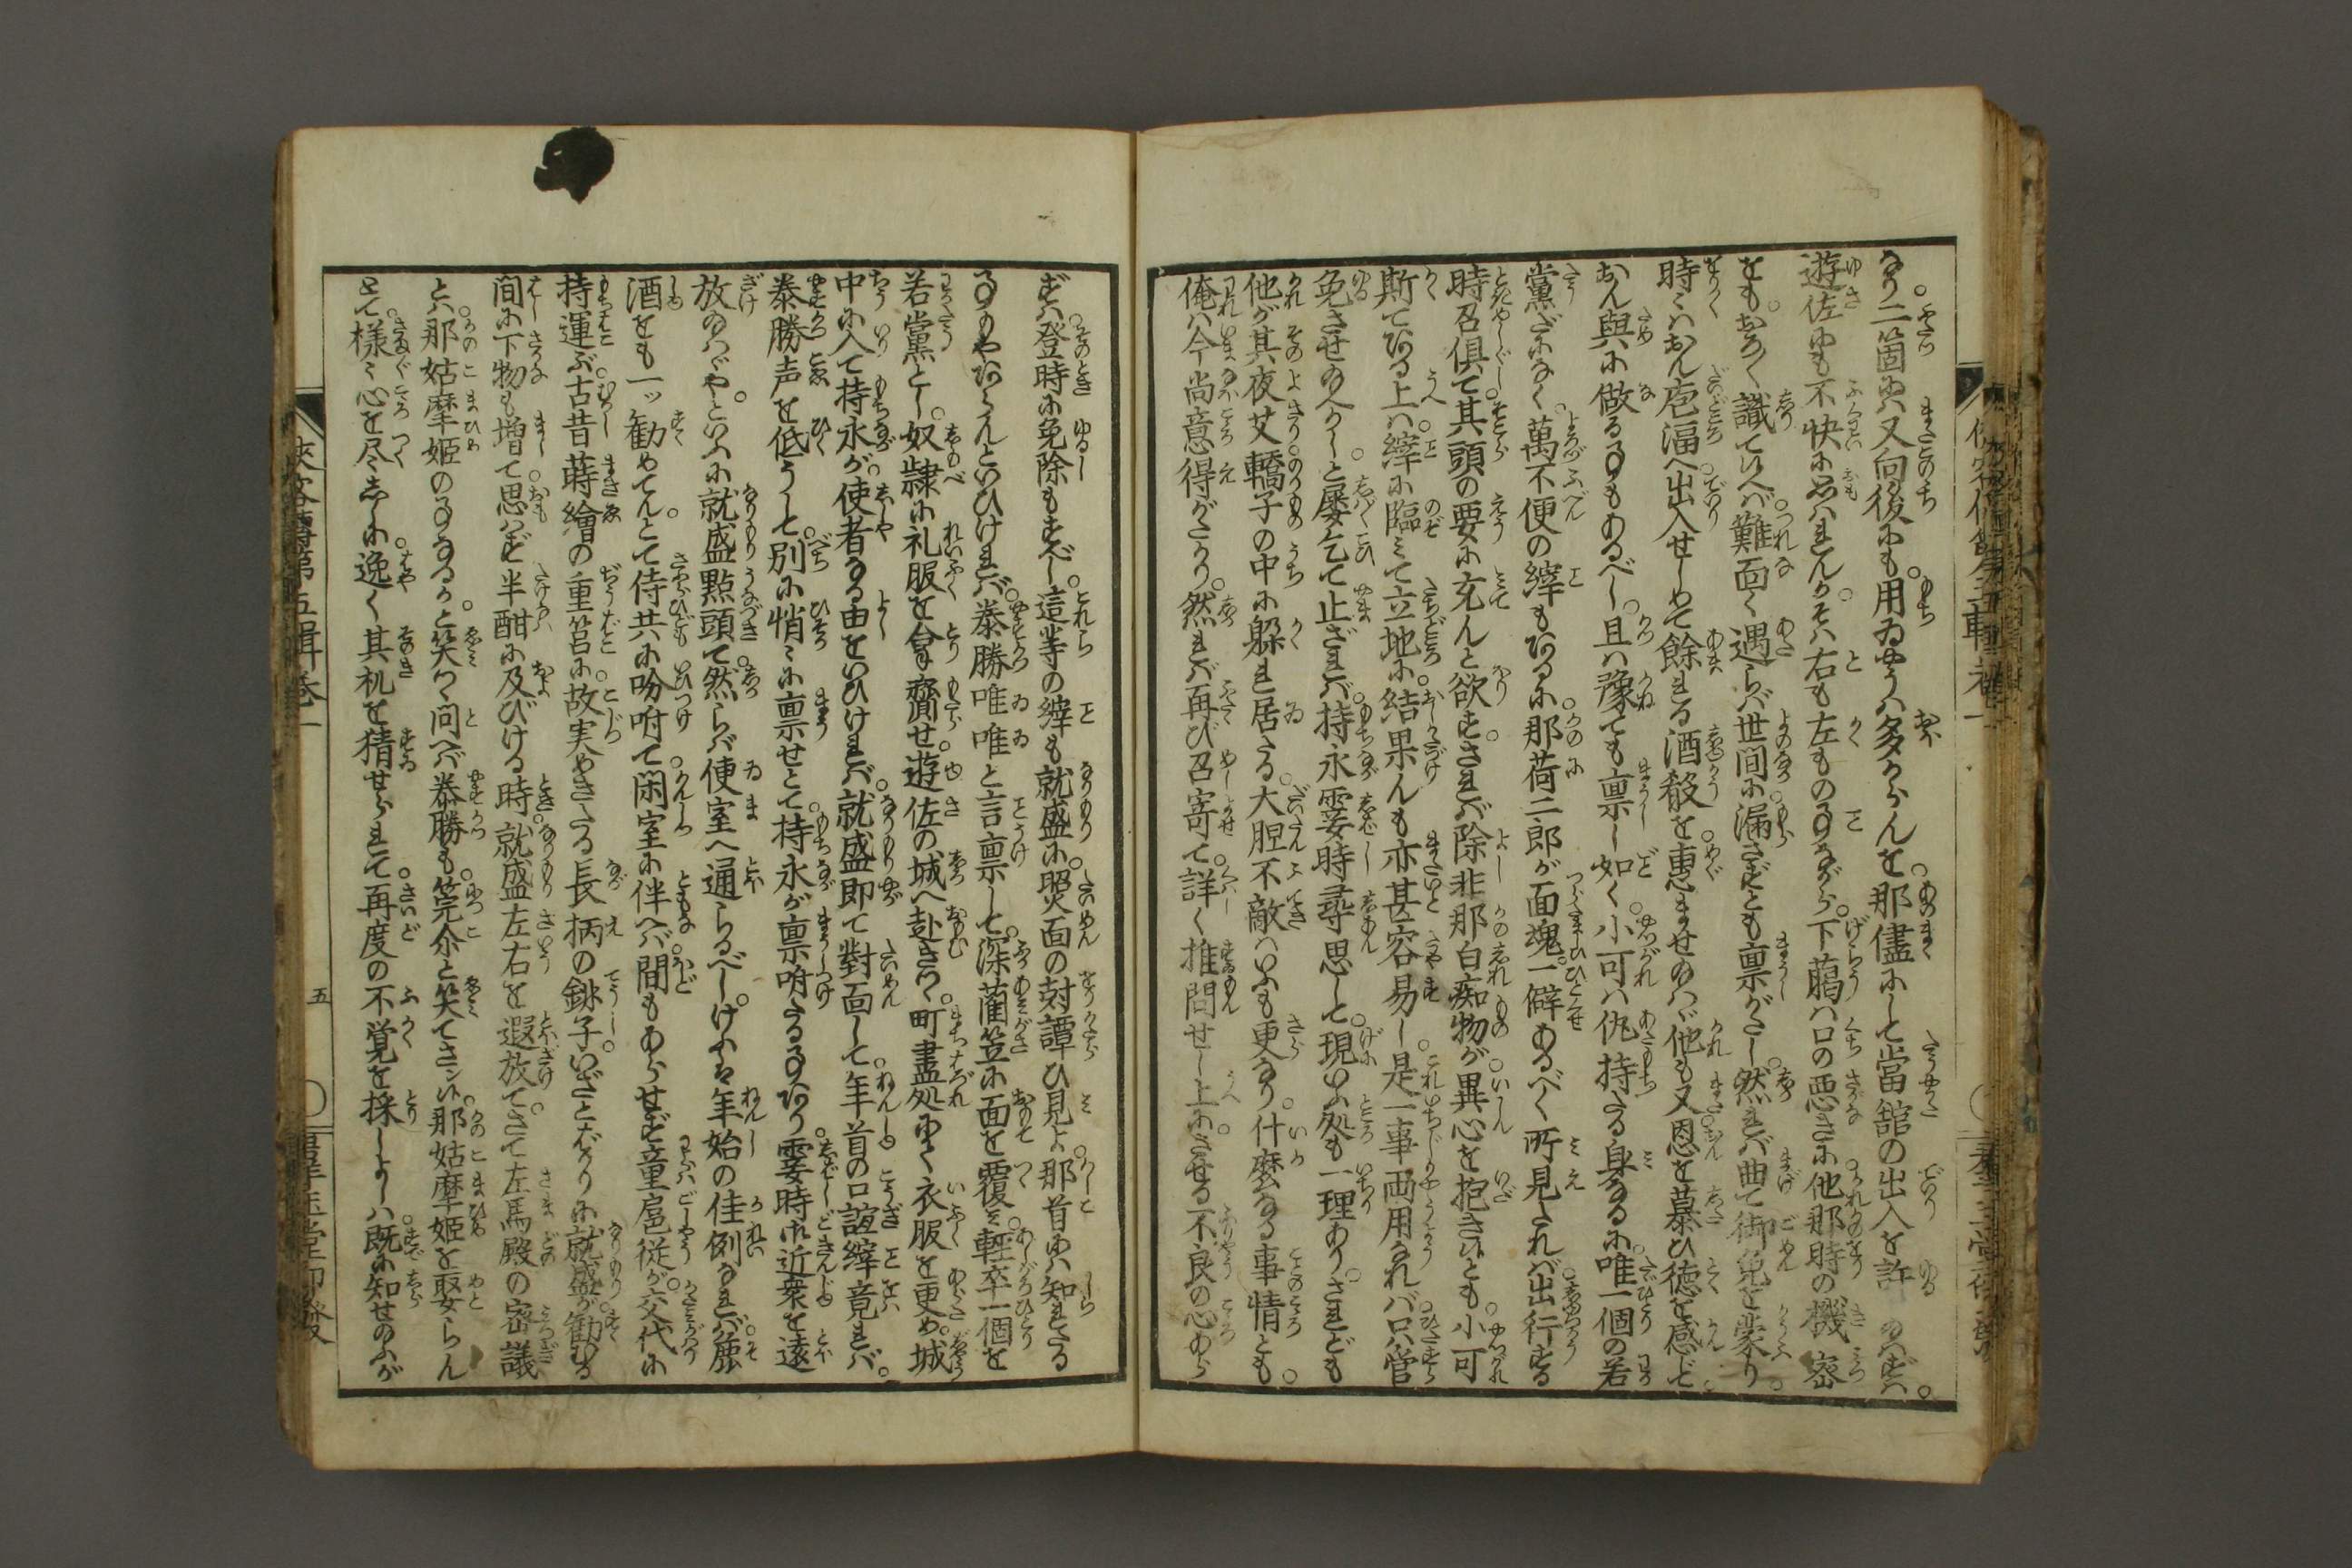 なり。二箇にハ又向後にも。用ゐやうハ多からんを。那儘にして當舘の出入を許し給ハずハ。
遊佐にも不快に思ハれんか。そハ右も左もの事ながら。下﨟ハ口の悪きに他那時の機密
をも。おろ〳〵識てをれバ。難面く遇らバ世間に漏さずとも禀がたし。然れバ曲て御免を蒙り。
時〻ハおん庖湢へ出入せしめて餘れる酒殽を。恵ませ給ハヾ他も又恩を慕ひ徳を感じ。
おん與に做る事もあるべし。且ハ豫ても禀し如く。小可ハ仇持たる身なるに。唯一個の若
黨だになく。萬不便の縡もあるに。那荷二郎が面魂。一僻あるべく所見たれバ出行する
時召俱て。其頭の要に充んと欲す。されバ除非那白痴物が異心を抱き候とも。小可
斯てある上ハ。縡に臨ミて立地に。結果んも亦甚容易し。是一事両用なれバ。只管
免させ給へかし。と屡乞て止ざれバ。持永霎時尋思して。現いふ処も一理あり。されども
他が其夜艾轎子の中に躱れ居たる。大胆不敵ハいふも更なり。什麼なる事情とも。
俺ハ今尚意得がたかり。然れバ再び召寄て。詳く推問せし上に。させる不良の心あら
ずハ。登時に免除もすべし。這等の縡も就盛に。照面の討譚ひ見よ。那首にハ知れたる
事もやあらんといひけれバ。泰勝唯唯と言禀して。深藺笠に面を覆ミ。輕卒一個を
若黨とし。奴隷に礼服を拿齎せ。遊佐の城へ赴きつ。町盡処にて衣服を更め。城
中に入て持永が。使者なる由をいひけれバ。就盛即て對面して。年首の口誼縡竟れバ。
泰勝声を低うして。別に悄〻に禀せとて。持永が禀咐たる事あり。霎時御近衆を遠
放給へバや。といふに就盛點頭て。然らバ便室へ通らるべし。けふハ年始の佳例なれバ。麁
酒をも一ッ勧めてん。とて侍共に吩咐て。閑室に伴へバ。間もあらせず童扈従が。交代に
持運ぶ。古昔蒔繪の重筥に。故実めきたる長柄の銚子。いざとばかりに就盛が。勧むる
間に下物も増て。思ハず半酣に及びける時。就盛左右を遐放て。さて左馬殿の密議
とハ。那姑摩姫の事なるか。と笑つゝ問へバ泰勝も。莞尒と笑てさン候。那姑摩姫を娶らん
とて。様〻心を尽しゝに。逸く其机を猜せられて。再度の不覚を採しよしハ。既に知せ給ふが
俠客傳第五輯卷一
五